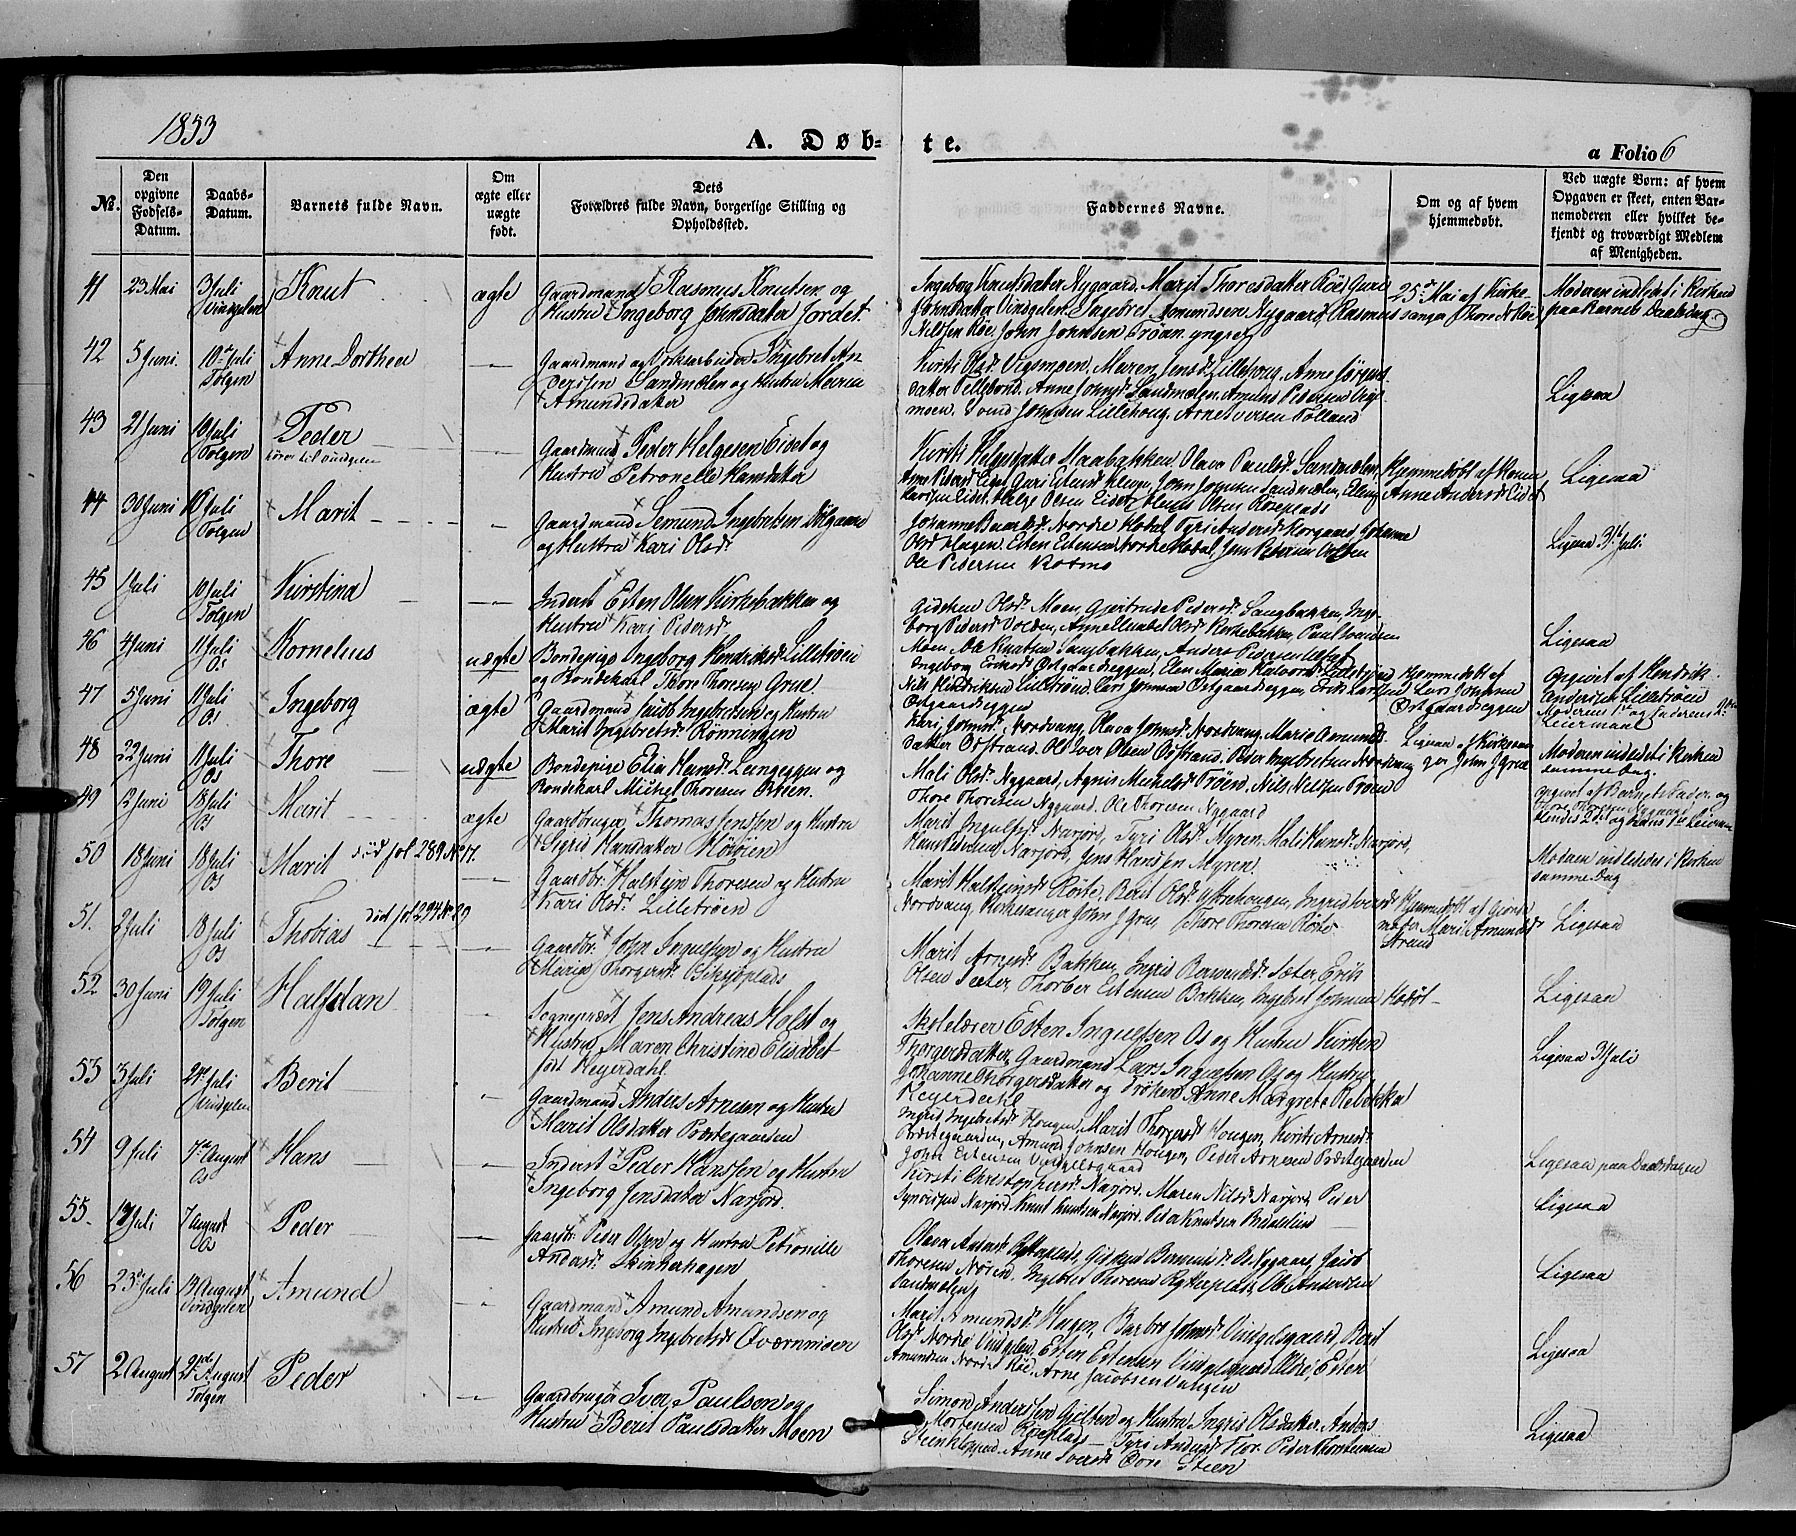 1853
A. Døbte.
a Folio 6
No. Den opgivne Fødsels-Datum. Daabs-Datum. Barnets fulde Navn. Om ægte eller uægte født. Dets Forældres fulde Navn, borgerlige Stilling og Opholdssted. Faddernes Navne. Om og af hvem hjemmedøbt. Ved uægte Børn: af hvem Opgaven er skeet, enten Barnemoderen eller hvilket bekjendt og troværdigt Medlem af Menigheden.
41 23 Mai 3 Juli Vindgelen Knut ægte Gaardmand Rasmus Knutsen og
Hustru Ingeborg Johnsdatter Jordet.
Ingeborg Knutsdatter Nygaard. Marit Thoresdatter Røe, Guri
Johnsdatter Vindgelen. Ingebret Amundsen Nygaard, Rasmus
Nilssen Røe, John Johnsen Trøan yngre
25de Mai af Kirkesanger Thore N Røe
Moderen indledet i Kirken paa Barnets Daabdag
42 5 Juni. 10de Juli Tolgen Anne Dorthea — Gaardmand og Værksarbeider Ingebret Anderssen Sandmælen og Hustru Maren
Amundsdatter
Kirsti Olsd. Vigsmoen. Maren Jensd. Lillehoug. Anne Jørgensdatter Tellebond. Anne Johnsd. Sandmælen. Amund Pedersen Vigsmoen. Svend Johnsen Lillehoug. Arne Iversen Tolland
Ligesaa
43 21 Juni 10 Juli Tolgen Peder — hører til Vindgelen — Gaardmand Peder Helgesen Eidet og
Hustru Petronelle Hansdatter
Kirsti Helgesdatter Staabakken. Olava Paulsd. Sandmælen.
Anne Pedersd. Eidet. Guri Estensd. Kleven, John Johnsen Sandmælen, Elling
Larssen Eidet. Helge Olsen Eidet,
Hjemmedøbt af Konen Anne Andersd. Eidet
Ligesaa
44 30 Juni 10 Juli Tolgen Marit — Gaardmand Semund Ingebretsen Dølgaard
og Hustru Kari Olsd.
Johanne Baardsd. Nordre Hodal. Tyri Andersd. Norgaard. Johanne
Olsd. Hagen. Esten Estensen Nordre Hodal. Jon Pedersen Østen
Ole Pedersen Kosmo
Ligesaa 31te Juli.
45 1 Juli 10 Juli Tolgen Kirstina — Inderst Esten Olsen Kirkebakken og
Hustru Kari Pedersd.
Gidsken Olsd. Moen, Gjertrude Pedersd. Langbakken, Ingeborg Pedersd. Volden, Anne Elisabet Olsd. Kirkebakken, Paul Svendsen
Moen. Ole Knutsen Langbakken, Anders Pedersen
Ligesaa
46 4 Juni 11 Juli Os Kornelius uægte Bondepige Ingeborg Hendriksd. Lilletrøen
og Bondekarl Thore Thoresen Grue.
Ingeborg Eriksd. Østgaardeggen, Elen Maria Halvorsd. Lilletrøen
Nils Hendriksen Lilletrøen, Lars Johnsen Østgaardseggen, Erik Larssen
Østgaardseggen
Hjemmedøbt af Lars Johnsen Østgaardseggen
Opgivet af Hendrik Andersen Lilletrøen
Moderens 1ste og Faderens 2den Leiermaal
47 5 Juni 11 Juli Os Ingeborg ægte Gaardmand Jacob Ingebretsen og Hustru
Marit Ingebretsd. Rønningen
Kari Johnsd. Nordvang, Olava Johnsd. Nordvang, Marie Amundsdatter Østrand, Ole Iver Olsen Østrand, Peder Ingebretsen Nordvang
Ligesaa af Kirkesanger John J Grue
Moderen indledet i Kirken samme Dag.
48 22 Juni 11 Juli Os Thore — uægte Bondepige Elia Hansd. Langeggen og
Bondekarl Michel Thoresen Østien.
Mali Olsd. Nygaard, Agnis Michelsd. Trøen, Nils Nilssen Trøen
Thore Thoresen Nygaard. Ole Thoresen Nygaard
Opgivet af Barnets Fader og
Thore Thoresen Nygaard
Hendes 2det og hans 1ste Leiermaal
49 12 Juni 18 Juli Os Marit ægte Gaardbruger Thomas Jenssen og Hustru
Sigrid Hansdatter
Marit Ingulfsd. Narjord, Tyri Olsd. Myren. Mali Hansd. Narjord,
Hans Pedersen Narjord, Jens Hanssen Myren.
Moderen indledet i Kirken samme Dag
50 18 Juni 18 Juli Os Marit død fol 289 No 17. — Gaardbr. Halsten Thoresen og Hustru
Kari Olsd. Lilletrøen
Marit Halstensd. Røste, Berit Olsd. Østrehougen, Ingrid Iversd.
Nordvang, Kirkesanger John J Grue, Thore Thoresen Røste
Hjemmedøbt af Gjordemoder Mari Amundsd. Strand
Ligesaa
51. 2 Juli 18 Juli Os Thobias død fol 294 No 29 — Gaardbr. John Ingulfsen og Hustru
Maria Thorgersd.
Marit Arnesd. Bakken, Ingrid Sæter, Erik
Olsen Sæter, Thorber Estensen Bakken, Ingebret Johnsen Hodøl —
Ligesaa
52 30 Juni 19 Juli Tolgen Halfdan — Sogneprest Jens Andreas Holst og
Hustru Maren Christine Elisabet
født Heyerdahl.
Skolelærer Esten Ingulfsen Os og Hustru Kirsten
Thorgersdatter, Gaardmand Lars Ingulfsen Os og Hustru
Johanne Thorgersdatter og Frøken Anna Margrete Rebekka
Heyerdahl
Ligesaa 31 Juli
53 3 Juli 24de Juli Vindgelen Berit — Gaardmand Anders Arnesen og Hustru
Marit Olsdatter Præstegaarden
Ingrid Ingebretsd. Hougen, Marit Thoresd. Hougen, Kirsti Arnesd.
Præstegaarden, Amund Johnsen Hougen, Peder Arnesen Præstegaarden
John Estensen Vindgelsgaard
Ligesaa paa Daabsdagen
54 9 Juli 7de August Os Hans — Inderst Peder Hanssen og Hustru
Ingeborg Jensdatter Narjord.
Kirsti Christophersd. Narjord, Maren Nilsd. Narjord, Peder
Narjord, Knut Knutsen Narjord, Peder Knutsen
Ligesaa
55. 17 Juli 7 August Os Peder — Gaardbr. Peder Olsen og Hustru Petronille
Andersd. Skinderhagen
Olava Andersd. Rytterplads, Gidsken Os Nygaard, Jacob
Thoresen Nøren. Ingebret Thoresen Rytterplads, Ole Andersen
Sandmælen
Ligesaa
56 23de Juli 14 August Vindgelen Amund — Gaardmand Amund Amundsen og
Hustru Ingeborg Ingebretsd. Qværnmoen
Marit Amundsd. Hagen, Barbro Johnsd. Vindgelsgaard, Berit
Olsd. Nordre Vindgelen, Esten Estensen Vindgelsgaard, Esten
Amundsen Nordre Røe, Arne Jacobsen
Ligesaa
57 2 August 21de August Tolgen Peder — Gaardbruger Iver Paulsen og
Hustru Berit Paulsdatter Moen
Simon Anderssen og Hustru Ingrid Olsdatter, Anders
Mortensen — Tyri Andersd. Peder Thorstensen
Anne Iversd. Øvre Steen
Ligesaa